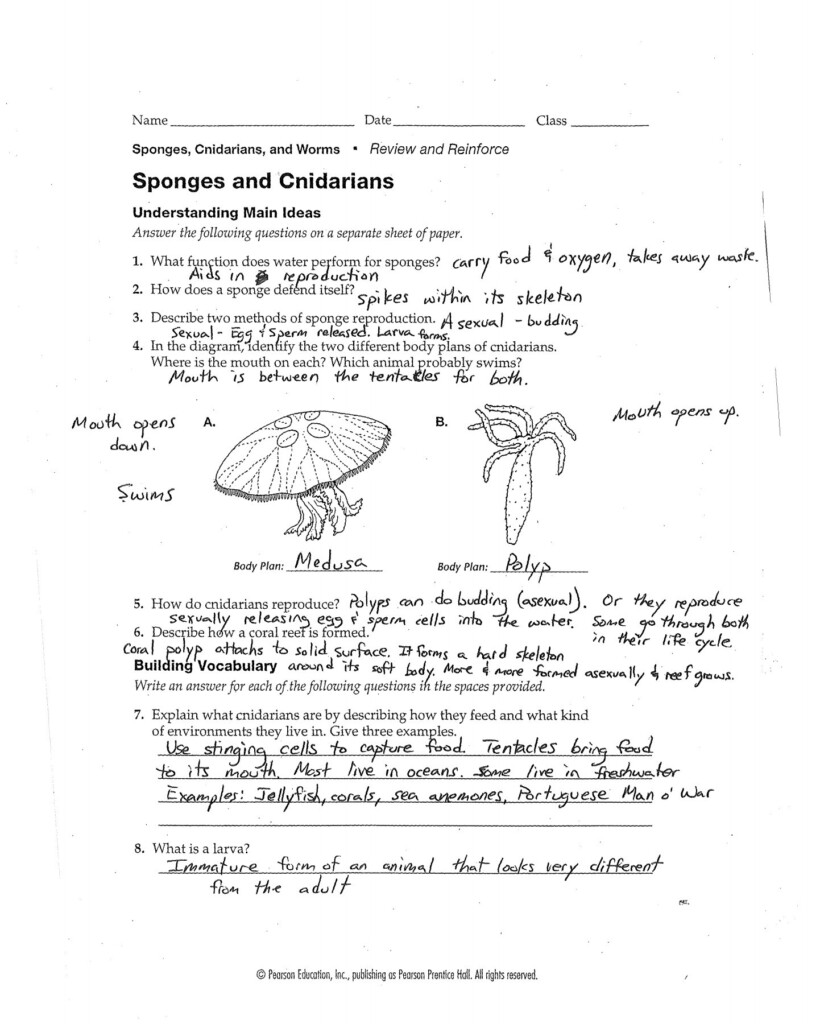 Name Date Class
Sponges, Cnidarians, and Worms ▪ Review and Reinforce
Sponges and Cnidarians
Understanding Main Ideas
Answer the following questions on a separate sheet of paper.
1. What function does water perform for sponges? carry food & oxygen, takes away waste.
Aids in reproduction
2. How does a sponge defend itself? spikes within its skeleton
3. Describe two methods of sponge reproduction. Asexual - budding
Sexual - Egg & Sperm released. Larva forms.
4. In the diagram, identify the two different body plans of cnidarians.
Where is the mouth on each? Which animal probably swims?
Mouth is between the tentacles for both.
Mouth opens
down.
Swims
A.
B.
Mouth opens up.
Body Plan: Medusa
Body Plan: Polyp
5. How do cnidarians reproduce? Polyps can do budding (asexual). Or they reproduce
sexually releasing egg & sperm cells into the water. Some go through both
in their life cycle
6. Describe how a coral reef is formed.
Coral polyp attachs to solid surface. It forms a hard skeleton
around its soft body. More & more formed asexually & reef grows.
Building Vocabulary
Write an answer for each of the following questions in the spaces provided.
7. Explain what cnidarians are by describing how they feed and what kind
of environments they live in. Give three examples.
Use stinging cells to capture food. Tentacles bring food
to its mouth. Most live in oceans. Some live in freshwater
Examples: Jellyfish, corals, sea anemones, Portuguese Man o' War
8. What is a larva?
Immature form of an animal that looks very different
from the adult
© Pearson Education, Inc., publishing as Pearson Prentice Hall. All rights reserved.